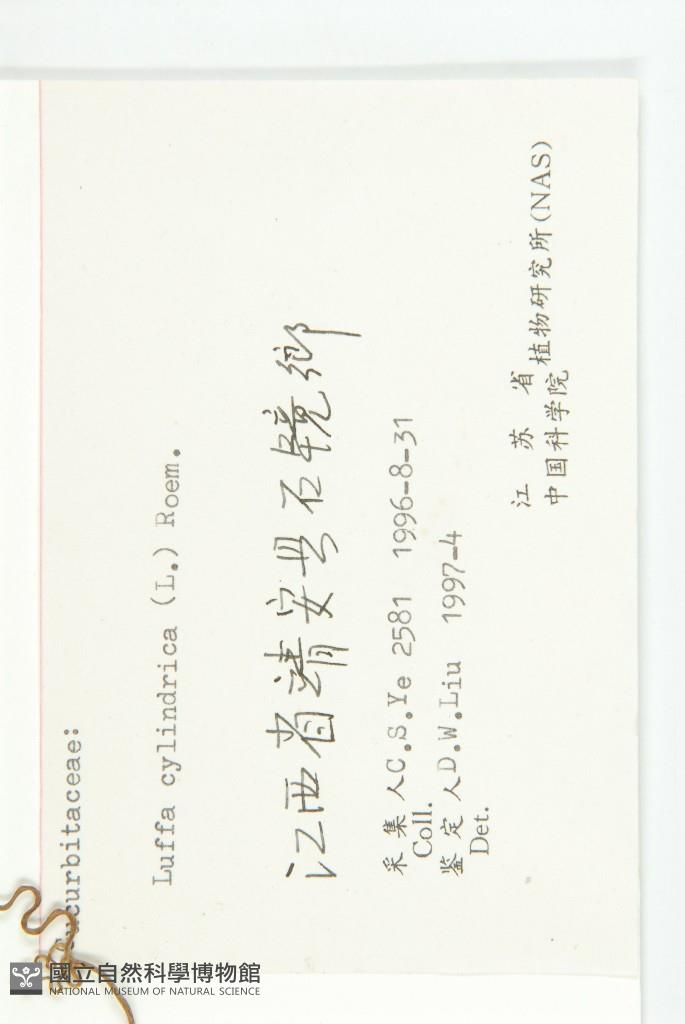 Cucurbitaceae:
Luffa cylindrica (L.) Roem.
江西省靖安县石镜鄉
采集人C.S.Ye 2581 1996-8-31
Coll.
鉴定人D.W.Liu 1997-4
Det.
江苏省
中国科学院植物研究所(NAS)
國立自然科學博物館
NATIONAL MUSEUM OF NATURAL SCIENCE